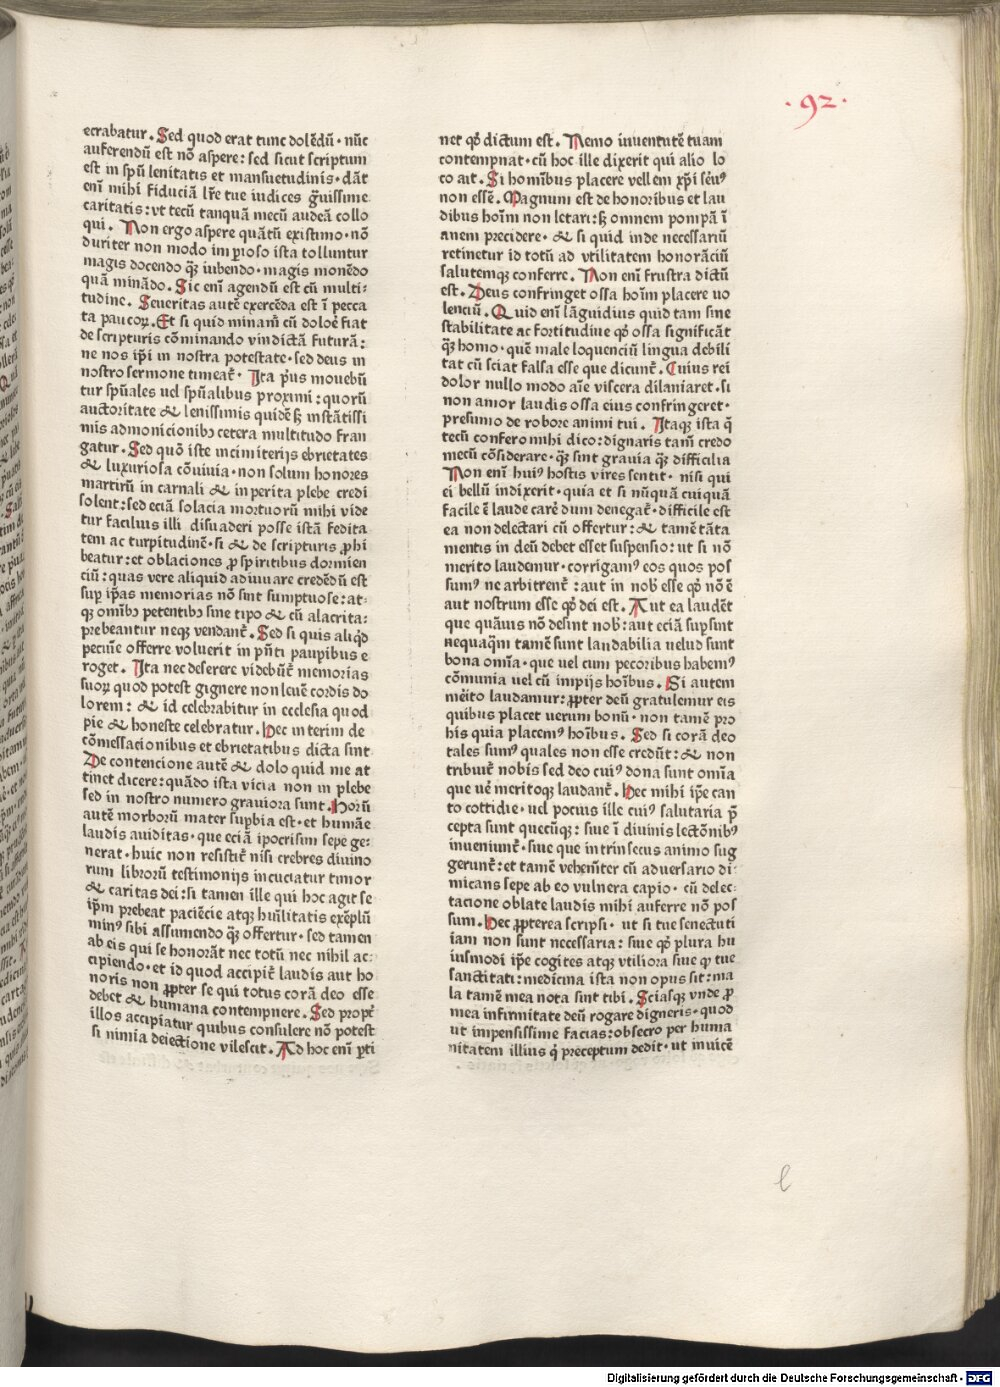 ·92·
ecrabatur. Sed quod erat tunc dolēdū· nūc
auferendū est nō aspere: sed sicut scriptum
est in spū lenitatis et mansuetudinis· dāt
eni̅ mihi fiduciā lr̄e tue iudices gͣuissime
caritatis: vt tecū tanquā mecū audeā collo
qui. Non ergo aspere quātū existimo· nō
duriter non modo im p̱ioso ista tolluntur
magis docendo qƺ iubendo· magis monēdo
quā minādo. Sic eni̅ agendū est cū multi-
tudine. Seueritas autē exercēda est ī pecca
ta paucoꝝ. Et si quid minam̄ cū doloē fiat
de scripturis cōminando vindictā futurā:
ne nos ip̄i in nostra potestate· sed deus in
nostro sermone timeat᷑. Ita pͥus mouebū
tur spūales uel spūalibus proximi: quorū
auctoritate & lenissimis quidē sƺ instātissi
mis admonicionibꝫ cetera multitudo fran
gatur. Sed quō iste in cimiterijs ebrietates
& luxuriosa cōuiuia· non solum honores
martirū in carnali & inperita plebe credi
solent: sed eciā solacia mortuorū mihi vide
tur facilius illi disuaderi posse istā fedita
tem ac turpitudinē· si & de scripturis ꝓhi
beatur: et oblaciones ꝓ spiritibus dormien
ciū: quas vere aliquid adiuuare credēdū est
suꝑ ip̄as memorias nō sint sumptuose: at-
qꝫ om̄ibꝫ petentibꝫ sine tipo & cū alacrita:
prebeantur neqꝫ vendant᷑. Sed si quis aliqͥd
pecuīe offerre voluerit in pn̄ti pauꝑibus e
roget. Ita nec deserere videbūt᷑ memorias
suoꝝ quod potest gignere non leuē cordis do
lorem: & id celebrabitur in ecclesia quod
pie & honeste celebratur. Hec interim de
cōmessacionibus et ebrietatibus dicta sint
De contencione autē & dolo quid me at
tinet dicere: quādo ista vicia non in plebe
sed in nostro numero grauiora sunt. Horū
autē morborū mater suꝑbia est· et humāe
laudis auiditas· que eciā ipocrisim sepe ge-
nerat· huic non resistit᷑ nisi crebres diuino
rum librorū testimonijs incuciatur timor
& caritas dei: si tamen ille qui hoc agit se
ip̄m prebeat paciēcie atqꝫ hūilitatis exēplū
minꝰ sibi assumendo qƺ offertur· sed tamen
ab eis qui se honorāt nec totū nec nihil ac:
cipiendo· et id quod accipit᷑ laudis aut ho
noris non ꝓpter se qui totus corā deo esse
debet & humana contempnere. Sed propt᷑
illos accipiatur quibus consulere nō potest
si nimia deiectione vilescit. Ad hoc eni̅ ꝑti
net qd̓ dictum est. Nemo iuuentutē tuam
contempnat· cū hoc ille dixerit qui alio lo
co ait. Si homībus placere vellem xp̄i s̄euꝰ
non essē. Magnum est de honoribus et lau
dibus hoīm non letari: sƺ omnem pompā ī
anem precidere· & si quid inde necessariū
retinetur id totū ad vtilitatem honorāciū
salutemqꝫ conferre. Non eni̅ frustra dictū
est. Deus confringet ossa hoīm placere uo
lenciū. Quid eni̅ lāguidius quid tam sine
stabilitate ac fortitudine qd̓ ossa significāt
qƺ homo· quē male loquenciū lingua debili
tat cū sciat falsa esse que dicunt᷑. Cuius rei
dolor nullo modo aīe viscera dilaniaret· si
non amor laudis ossa eius confringeret·
presumo de robore animi tui. Itaqꝫ ista q̄
tecū confero mihi dico: dignaris tam̄ credo
mecū cōsiderare· qƺ sint grauia qƺ difficilia
Non eni̅ huiꝰ hostis vires sentit· nisi qui
ei bellū indixerit· quia et si nūquā cuiquā
facile ē laude carē dum denegat᷑· difficile est
ea non delectari cū offertur: & tamē tāta
mentis in deū debet esset suspensio: ut si nō
merito laudemur· corrigamꝰ eos quos pos
sumꝰ ne arbitrent᷑: aut in nob̓ esse qd̓ nō ē
aut nostrum esse qd̓ dei est. Aut ea laudēt
que quāuis nō desint nob̓: aut eciā suꝑsint
nequaqͣm tamē sunt laudabilia uelud sunt
bona om̄ia· que uel cum pecoribus habemꝰ
cōmunia uel cū impijs hoībus. Si autem
meito laudamur: ꝓpter deū gratulemur eis
quibus placet uerum bonū· non tamē pro
his quia placemꝰ hoībus. Sed si corā deo
tales sumꝰ quales non esse credūt: & non
tribuit᷑ nobis sed deo cuiꝰ dona sunt om̄ia
que ue᷑ meritoqꝫ laudant᷑. Hec mihi ip̄e can
to cottidie· uel pocius ille cuiꝰ salutaria p̄
cepta sunt quecūqꝫ: siue ī diuinis lectōnibꝰ
inueniunt᷑· siue que intrinsecus animo sug
gerunt᷑: et tamē vehem̄ter cū aduersario di-
micans sepe ab eo vulnera capio· cū delec-
tacione oblate laudis mihi auferre nō pos
sum. Hec ꝓpterea scripsi· ut si tue senectuti
iam non sunt necessaria: siue qd̓ plura hu
iusmodi ip̄e cogites atqꝫ vtiliora siue ꝙ tue
sanctitati: medicina ista non opus sit: ma
la tamē mea nota sint tibi. Sciasqꝫ vnde ꝓ
mea infirmitate deū rogare digneris· quod
ut impensissime facias: obsecro per huma
nitatem illius qͥ preceptum dedit· ut inuicē
e
Digitalisierung gefördert durch die Deutsche Forschungsgemeinschaft - DFG